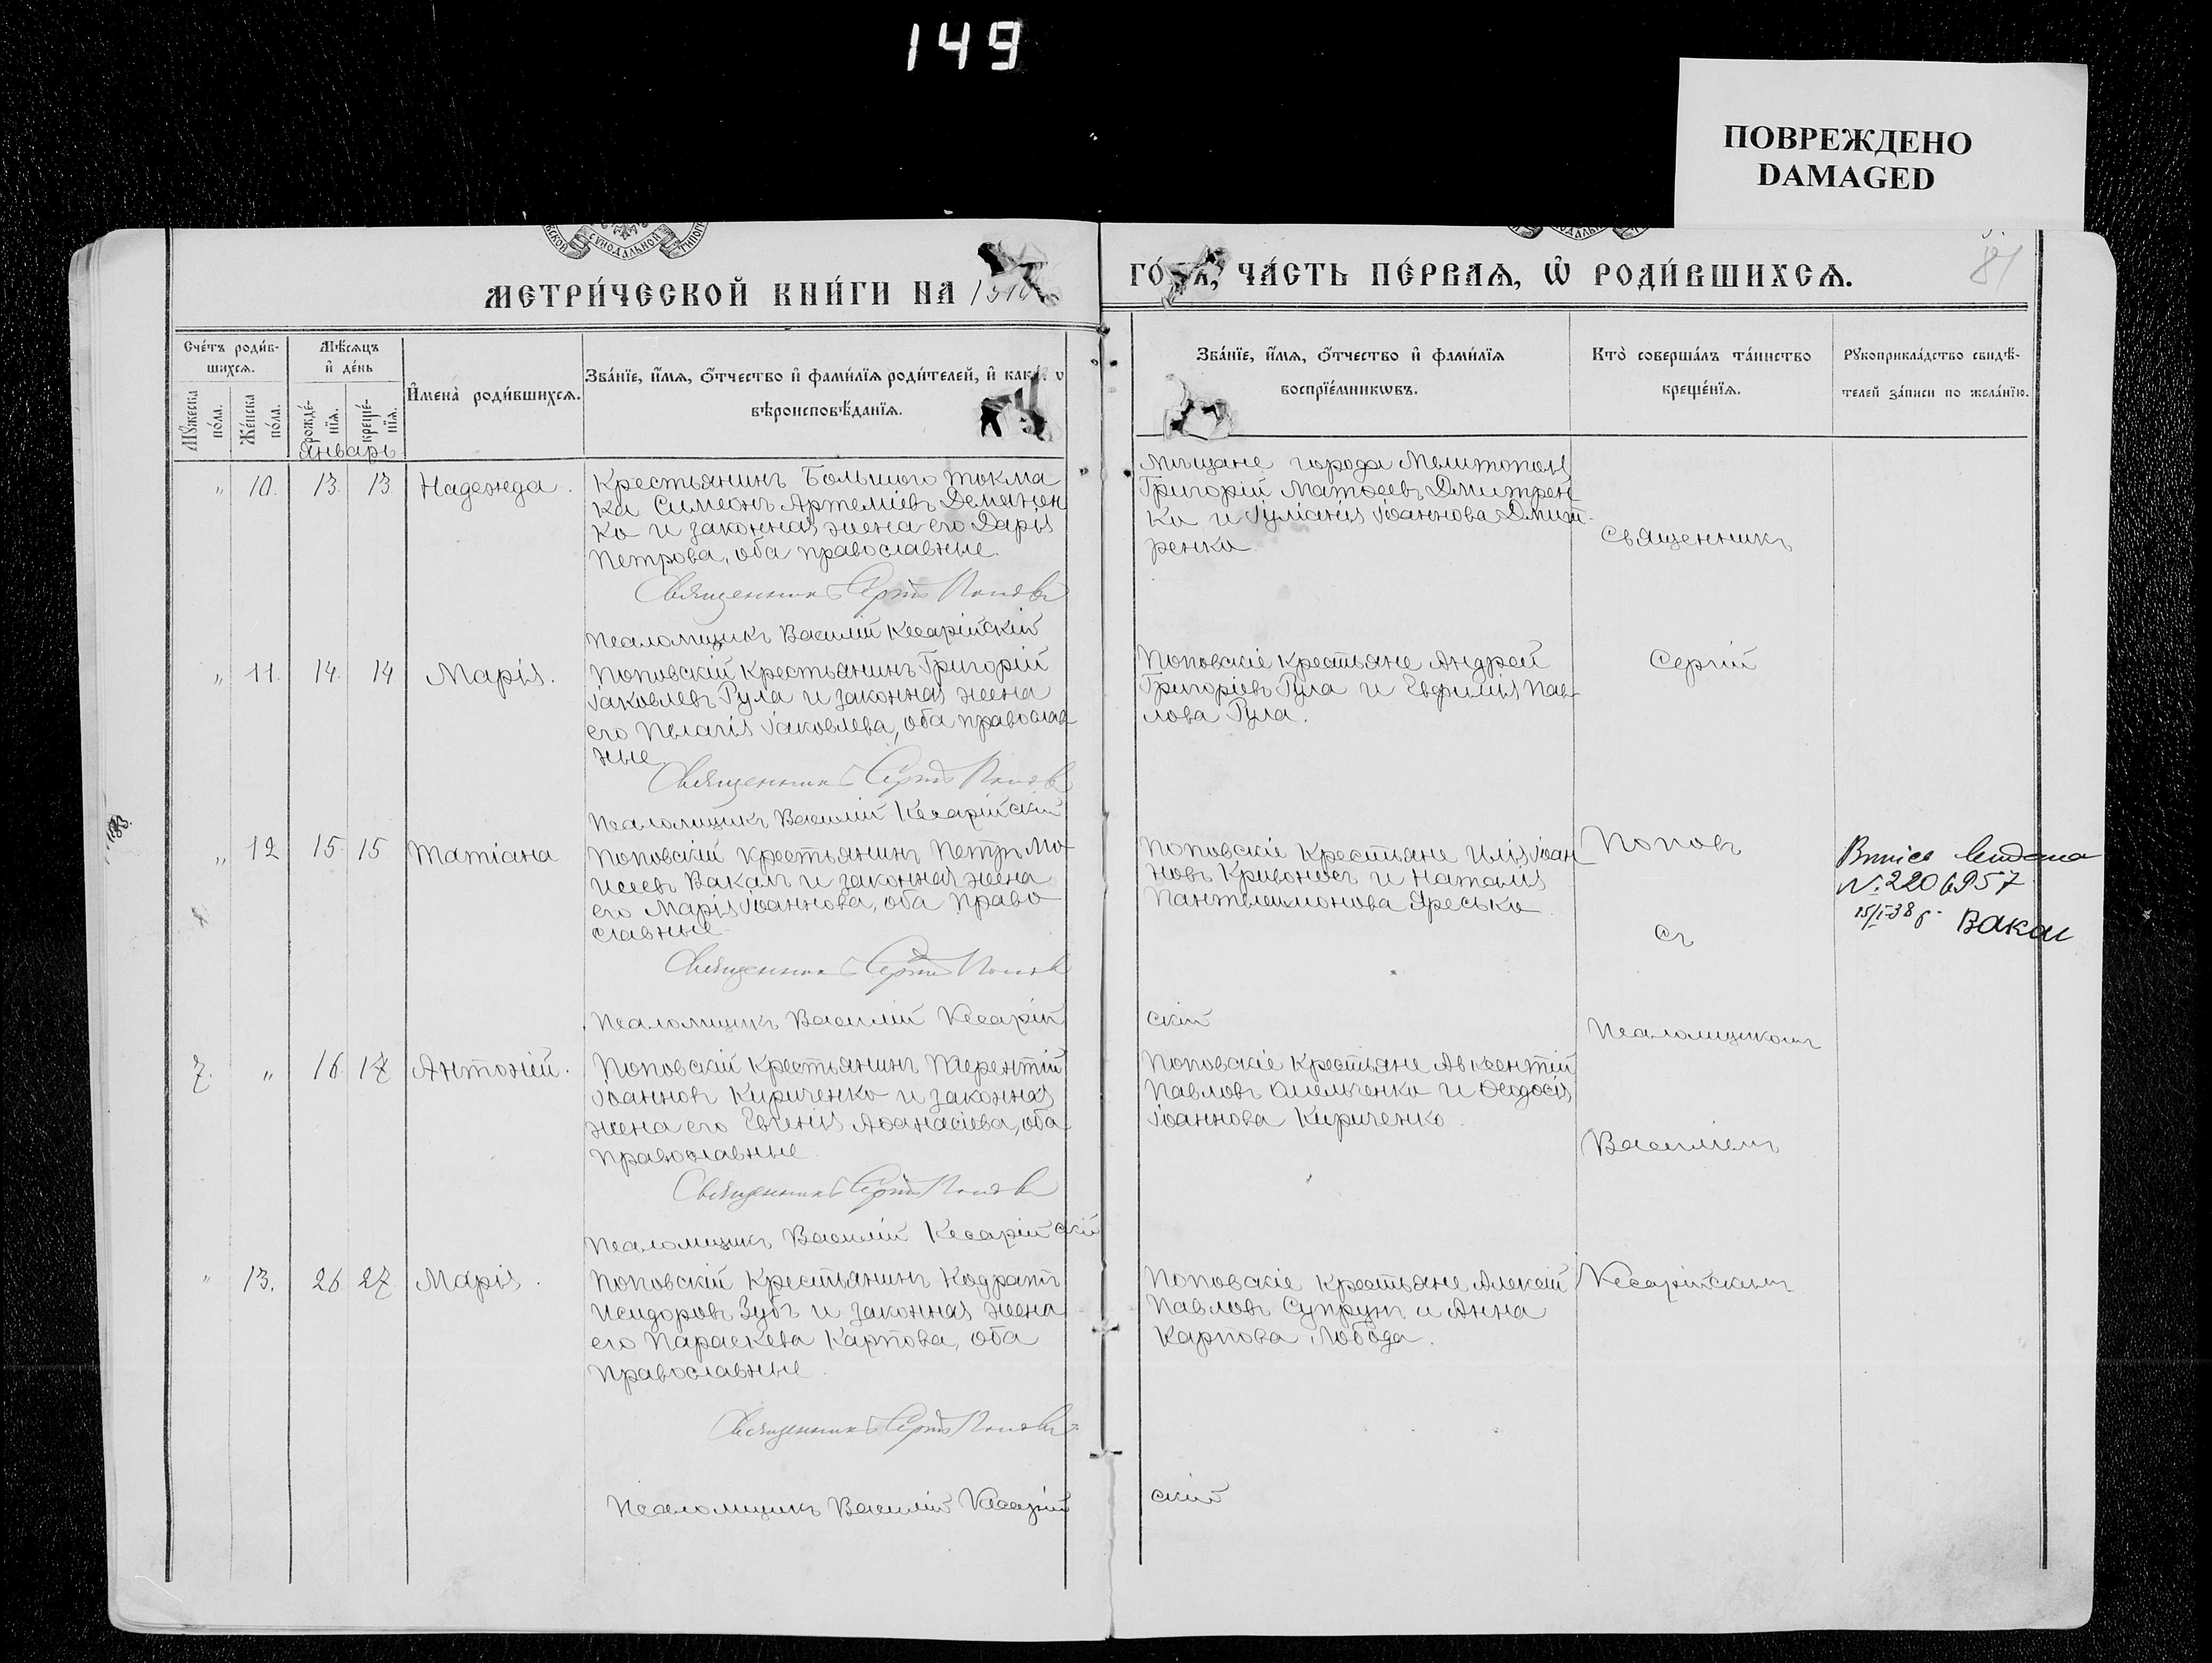 149
ПОВРЕЖДЕНО
DAMAGED
СѴНОДАЛЬНОЙ
МЕТРИ́ЧЕСКОЙ КНИ́ГИ НА
ЧА́СТЬ ПЕ́РВАѦ, Ѽ РОДИ́ВШИХСѦ.
81
Сче́тъ роди́в-
шихсѧ.
Мꙋ́жеска по́ла.
Же́нска по́ла.
Мѣ́сѧцъ
и҆ де́нь
рожде́-
нїѧ.
креще́-
нїѧ.
И҆мена̀ роди́вшихсѧ.
Зва́нїе, и҆́мѧ, ѻ҆́тчество и҆ фами́лїѧ роди́телей, и҆
вѣроисповѣ́данїѧ.
Зва́нїе, и҆́мѧ, ѻ҆́тчество и҆ фами́лїѧ
воспрїе́мникѡвъ.
Кто̀ соверша́лъ та́инство
креще́нїѧ.
Рꙋкоприкла́дство свидѣ́-
телей за́писи по жела́нїю.
Январь
„ 10. 13. 13 Надежда.
Крестьянинъ Большого Токма
ка Симеонъ Артеміевъ Деманен
ко и законная жена его Дарія
Петрова, оба православные.
Священникъ Сергій Поповъ
Псаломщикъ Василій Кесарійскій
Мѣщане города Мелитополя
Григорій Матѳеевъ Дмитрен
ко и Іуліанія Іоаннова Дмит-
ренко
Священникъ
„ 11. 14. 14 Марія.
Поповскій крестьянинъ Григорій
Іаковлевъ Гула и законная жена
его Пелагія Іаковлева, оба православ
ные
Священникъ Сергій Поповъ
Псаломщикъ Василій Кесарійскій
Поповскіе крестьяне Андрей
Григоріевъ Гула и Евфимія Пав-
лова Гула.
Сергій
„ 12 15 15 Татіана
Поповскій крестьянинъ Петръ Мо-
исеевъ Вакалъ и законная жена
его Марія Іоаннова, оба право
славные
Священникъ Сергій Поповъ
Псаломщикъ Василій Кесарій
скій
Поповскіе крестьяне Илія Іоан
новъ Кривоносъ и Наталія
Пантелеимонова Яресько
Поповъ
съ
Псаломщикомъ
№ 220697
15/I-38 г. Вакал
7. „ 16 17 Антоній.
Поповскій крестьянинъ Терентій
Іоанновъ Кириченко и законная
жена его Евгенія Аѳанасіева, оба
православные
Священникъ Сергій Поповъ
Псаломщикъ Василій Кесарійскій
Поповскіе крестьяне Авксентій
Павловъ Омельченко и Ѳеодосія
Іоаннова Кириченко.
Василіемъ
„ 13. 26 27 Марія.
Поповскій крестьянинъ Кодратъ
Исидоровъ Зубъ и законная жена
его Параскева Карпова, оба
православные.
Священникъ Сергій Поповъ.
Псаломщикъ Василій Кесарій
скій
Поповскіе крестьяне Алексій
Павловъ Супрунъ и Анна
Карпова Лобода.
Кесарійскимъ